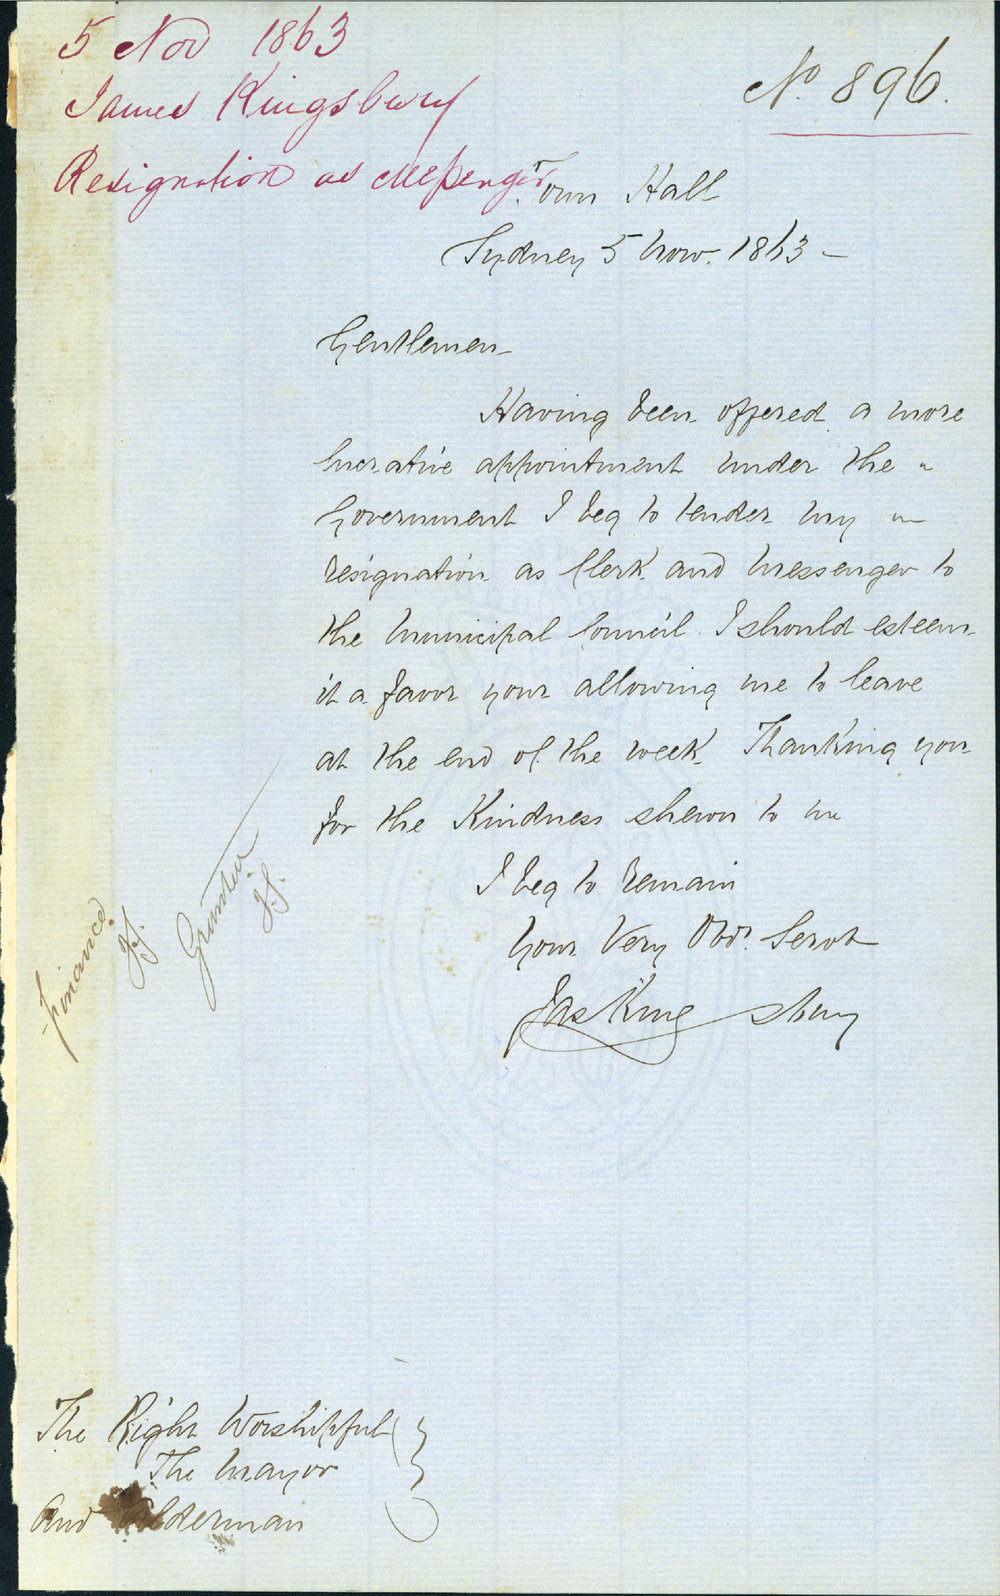 5 Nov 1863
James Kingsbury
Resignation as Messenger
No 896.
Town Hall
Sydney 5 Nov. 1863 –
Gentlemen
Having been offered a more
lucrative appointment under the
Government I beg to tender my
resignation as Clerk and Messenger to
the Municipal Council. I should esteem
it a favor your allowing me to leave
at the end of the week. Thanking you
for the Kindness shewn to me
I beg to remain
Your Very Obdt. Servt
Jas Kingsbury
Finance.
Granted
The Right Worshipful
The Mayor
And Alderman